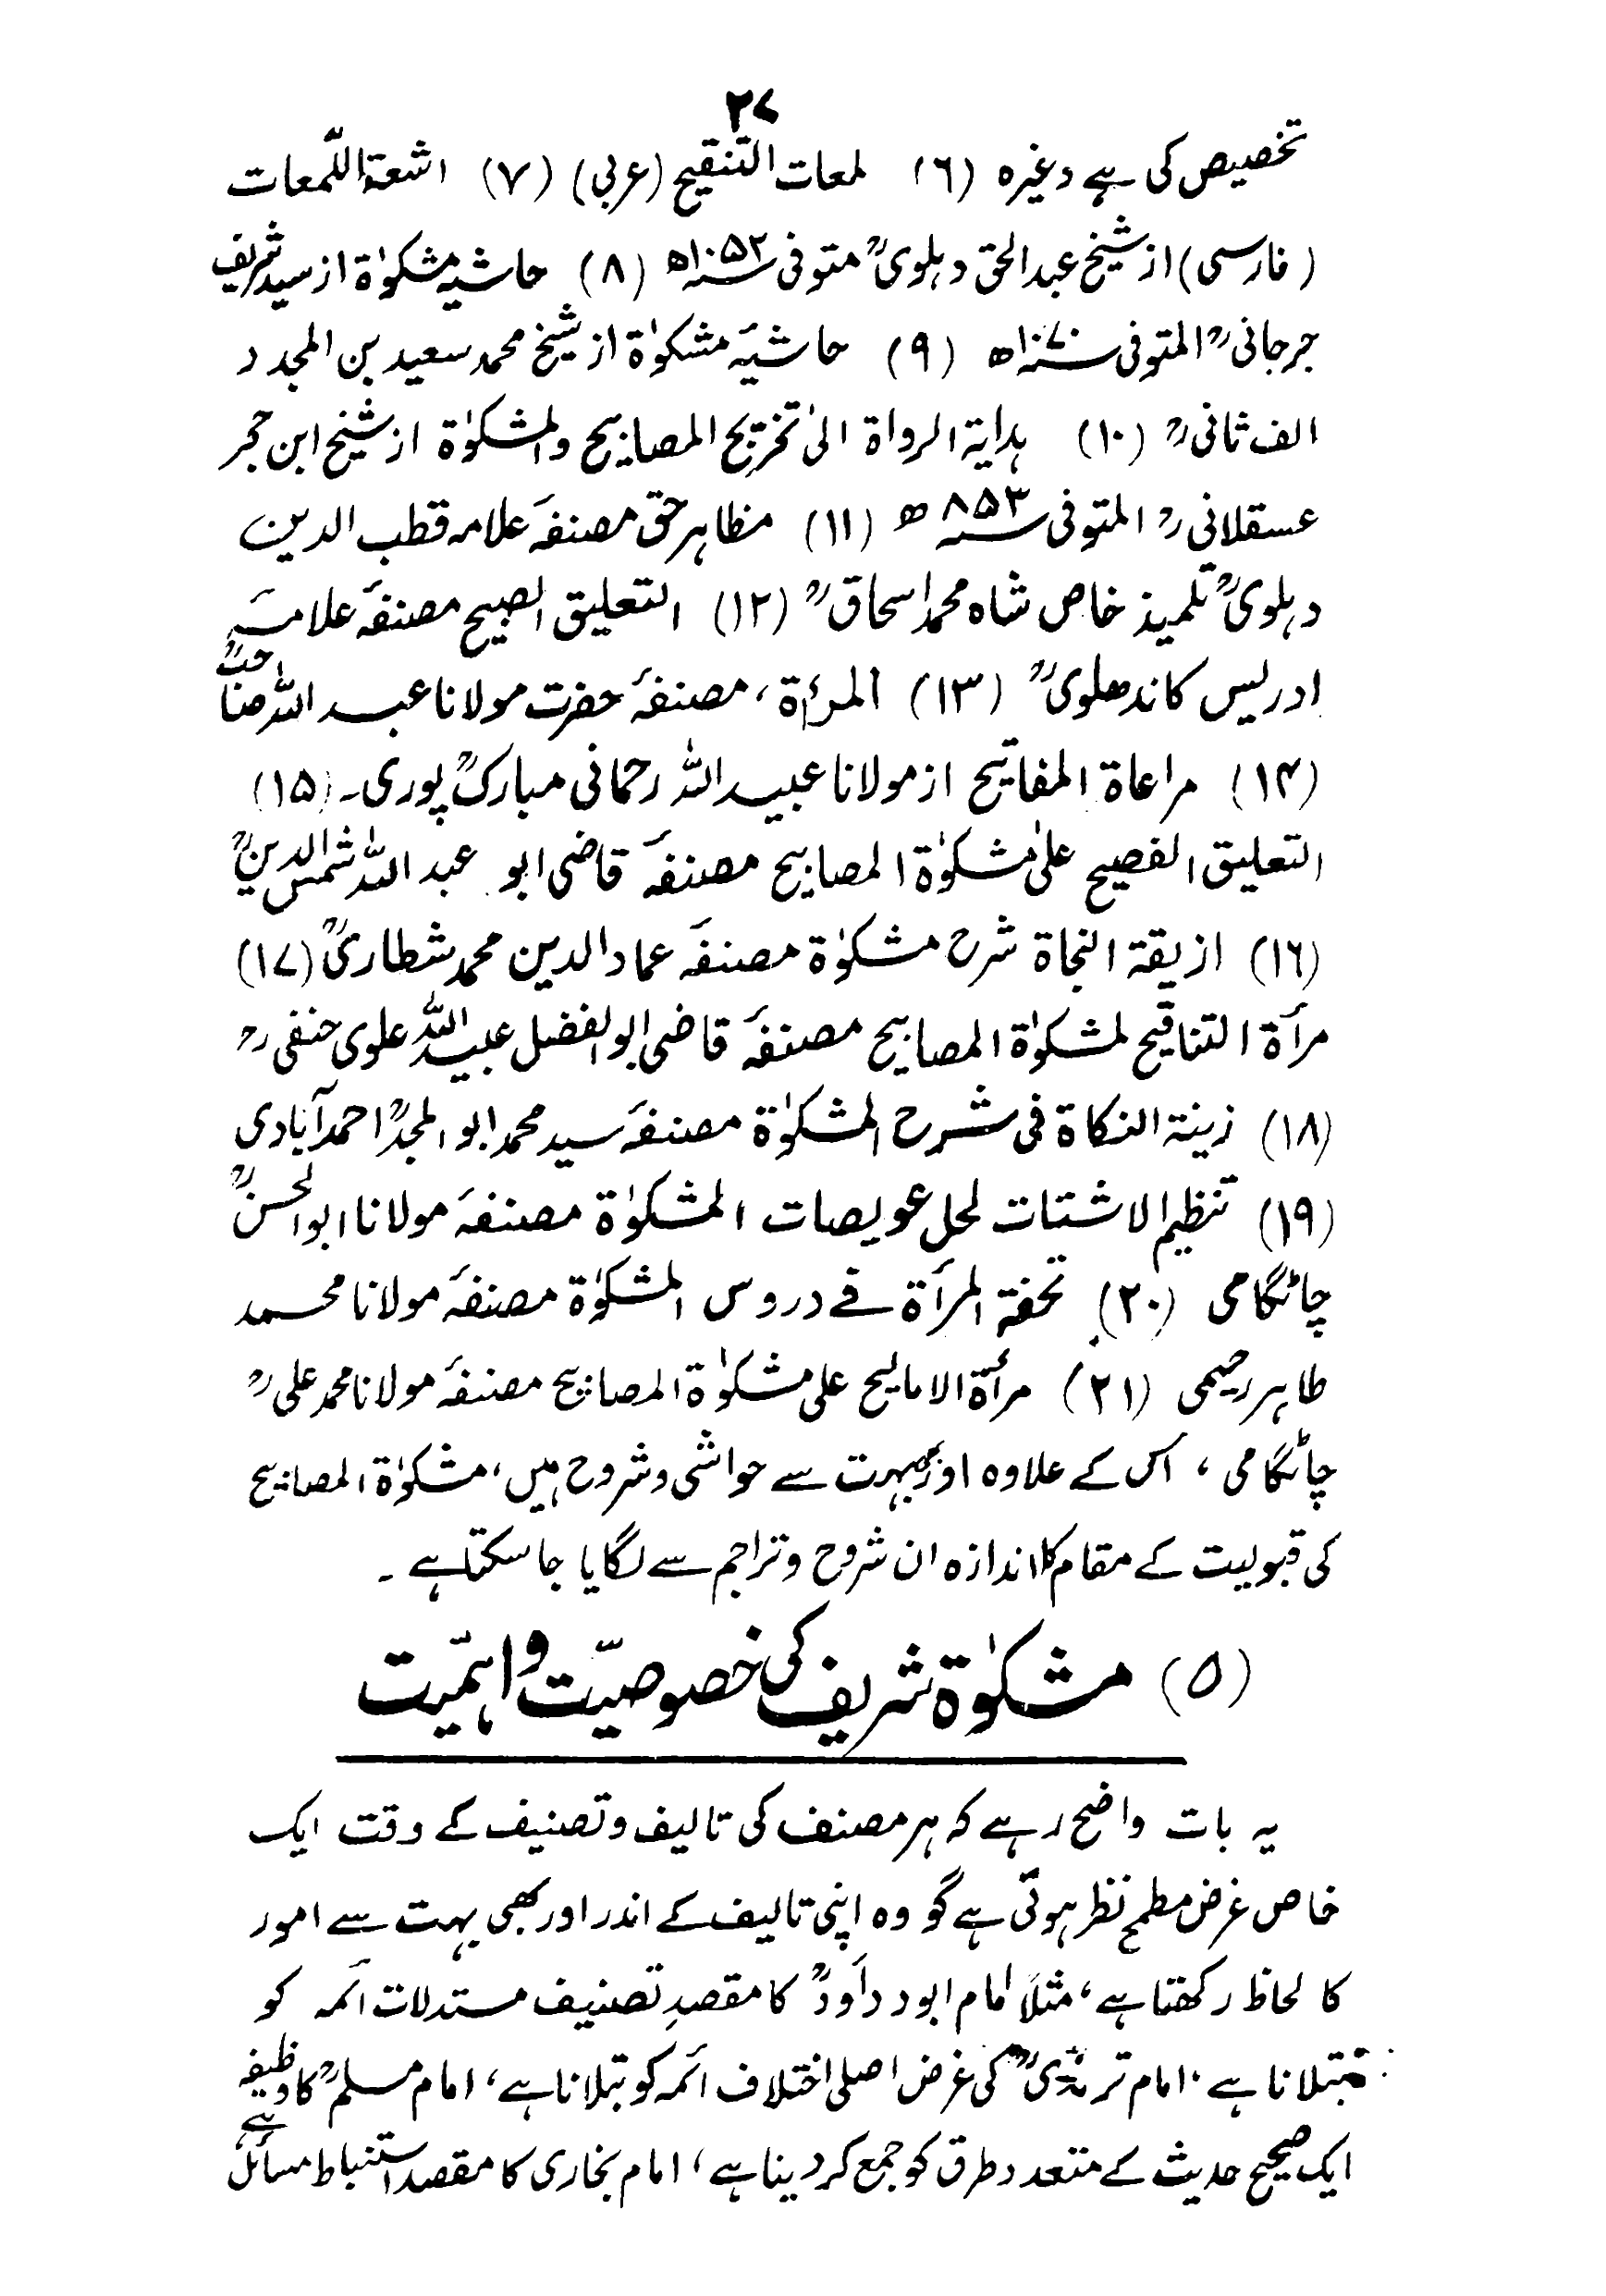 ۲۷
تخصیص کی ہے وغیرہ (۶) لمعات التنقیح (عربی) (۷) اشعۃ اللّمعات
(فارسی) از شیخ عبدالحق دہلویؒ متوفی ۱۰۵۲ھ (۸) حاشیہ مشکوٰۃ از سید شریف
جرجانیؒ المتوفی ۱۰۷۰ھ (۹) حاشیۂ مشکوٰۃ از شیخ محمد سعید بن المجدد
الف ثانیؒ (۱۰) ہدایۃ الرواۃ الیٰ تخریج المصابیح والمشکوٰۃ از شیخ ابن حجر
عسقلانیؒ المتوفی ۸۵۳ھ (۱۱) مظاہر حق مصنفہَ علامہ قطب الدین
دہلویؒ تلمیذ خاص شاہ محمد اسحاقؒ (۱۲) التعلیق الصبیح مصنفہَ علامہ
ادریس کاندھلویؒ (۱۳) المرءٰۃ، مصنفہَ حضرت مولانا عبداللہ صاحبؒ
(۱۴) مراعاۃ المفاتیح از مولانا عبیداللہ رحمانی مبارکؒ پوری۔ (۱۵)
التعلیق الفصیح علیٰ مشکوٰۃ المصابیح مصنفہَ قاضی ابو عبداللہ شمس الدینؒ
(۱۶) ازیقۃ النجاۃ شرح مشکوٰۃ مصنفہَ عماد الدین محمد شطاریؒ (۱۷)
مرأۃ التناقیح لمشکوٰۃ المصابیح مصنفہَ قاضی ابوالفضل عبیداللہ علوی حنفیؒ
(۱۸) زینۃ النکاۃ فی شرح المشکوٰۃ مصنفہَ سید محمد ابو المجدؒ احمدآبادی
(۱۹) تنظیم الاشتات لحل عویصات المشکوٰۃ مصنفہَ مولانا ابوالحسنؒ
چاٹگامی (۲۰) تحفۃ المرأۃ فے دروس المشکوٰۃ مصنفہَ مولانا محمد
طاہر رحیمی (۲۱) مرأۃ الامالیح علی مشکوٰۃ المصابیح مصنفہَ مولانا محمد علیؒ
چاٹگامی، اس کے علاوہ اور بھی بہت سے حواشی و شروح ہیں، مشکوٰۃ المصابیح
کی قبولیت کے مقام کا اندازہ ان شروح و تراجم سے لگایا جا سکتا ہے ۔
(۵) مشکوٰۃ شریف کی خصوصیّت و اہمّیت
یہ بات واضح رہے کہ ہر مصنف کی تالیف و تصنیف کے وقت ایک
خاص غرض مطمح نظر ہوتی ہے گو وہ اپنی تالیف کے اندر اور بھی بہت سے امور
کا لحاظ رکھتا ہے، مثلاً امام ابو داودؒ کا مقصدِ تصنیف مستدلات ائمہ کو
بتلانا ہے، امام ترمذیؒ کی غرض اصلی اختلاف ائمہ کو بتلانا ہے، امام مسلمؒ کا وظیفہ
ایک صحیح حدیث کے متعدد طرق کو جمع کر دینا ہے، امام بخاری کا مقصد استنباط مسائل ہے،